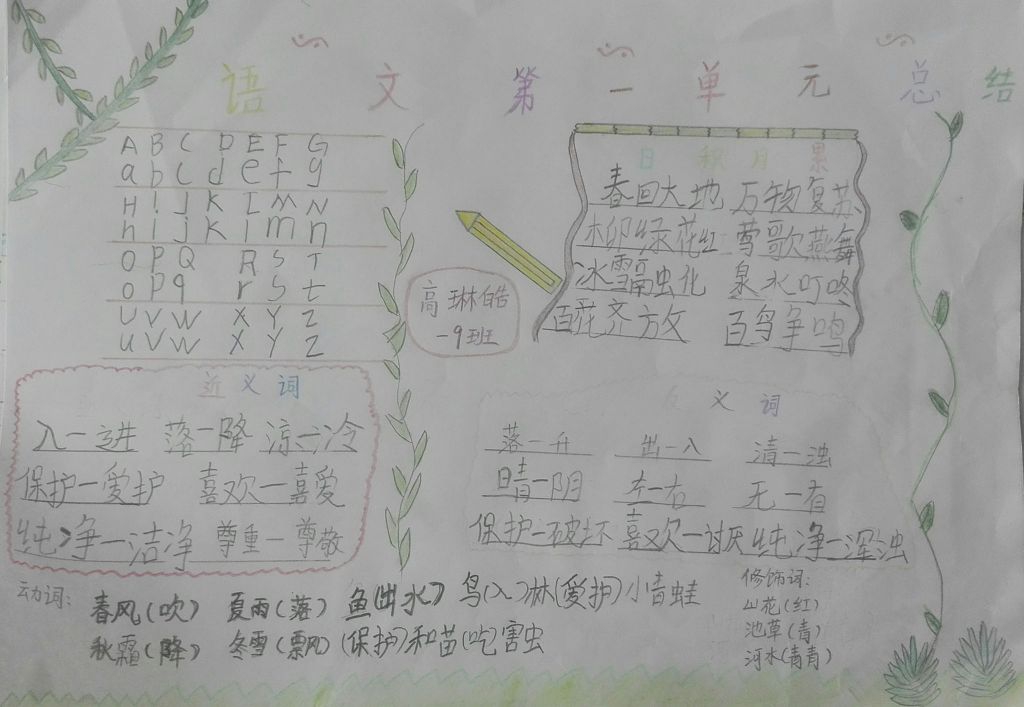 语文第一单元总结
A B C D E F G
a b c d e f g
H I J K L M N
h i j k l m n
O P Q R S T
o p q r s t
U V W X Y Z
u v w x y z
日积月累
春回大地 万物复苏
柳绿花红 莺歌燕舞
冰雪融化 泉水叮咚
百花齐放 百鸟争鸣
高琳皓
一9班
近义词
入一进 落一降 凉一冷
保护一爱护 喜欢一喜爱
纯净一洁净 尊重一尊敬
反义词
落一升 出一入 清一浊
晴一阴 左一右 无一有
保护一破坏 喜欢一讨厌 纯净一浑浊
动词:
春风(吹) 夏雨(落) 鱼(出水) 鸟(入)淋(爱护)小青蛙
秋霜(降) 冬雪(飘) (保护)和苗(吃)害虫
修饰词:
山花(红)
池草(青)
河水(青青)